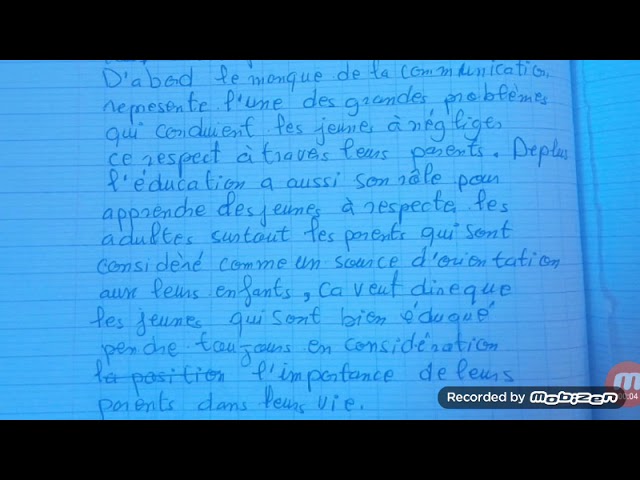 D'abord le manque de la communication
represente l'une des grandes problèmes
qui conduient les jeunes à négliger
ce respect à travers leurs parents. Deplus
l'éducation a aussi son rôle pour
apprendre des jeunes à respecter les
adultes surtout les parents qui sont
considéré comme un source d'orientation
aux leurs enfants, ça veut dire que
les jeunes qui sont bien éduqué
pendre toujours en considération
la position l'importance de leurs
parents dans leurs vie.
00:04
Recorded by mobizen